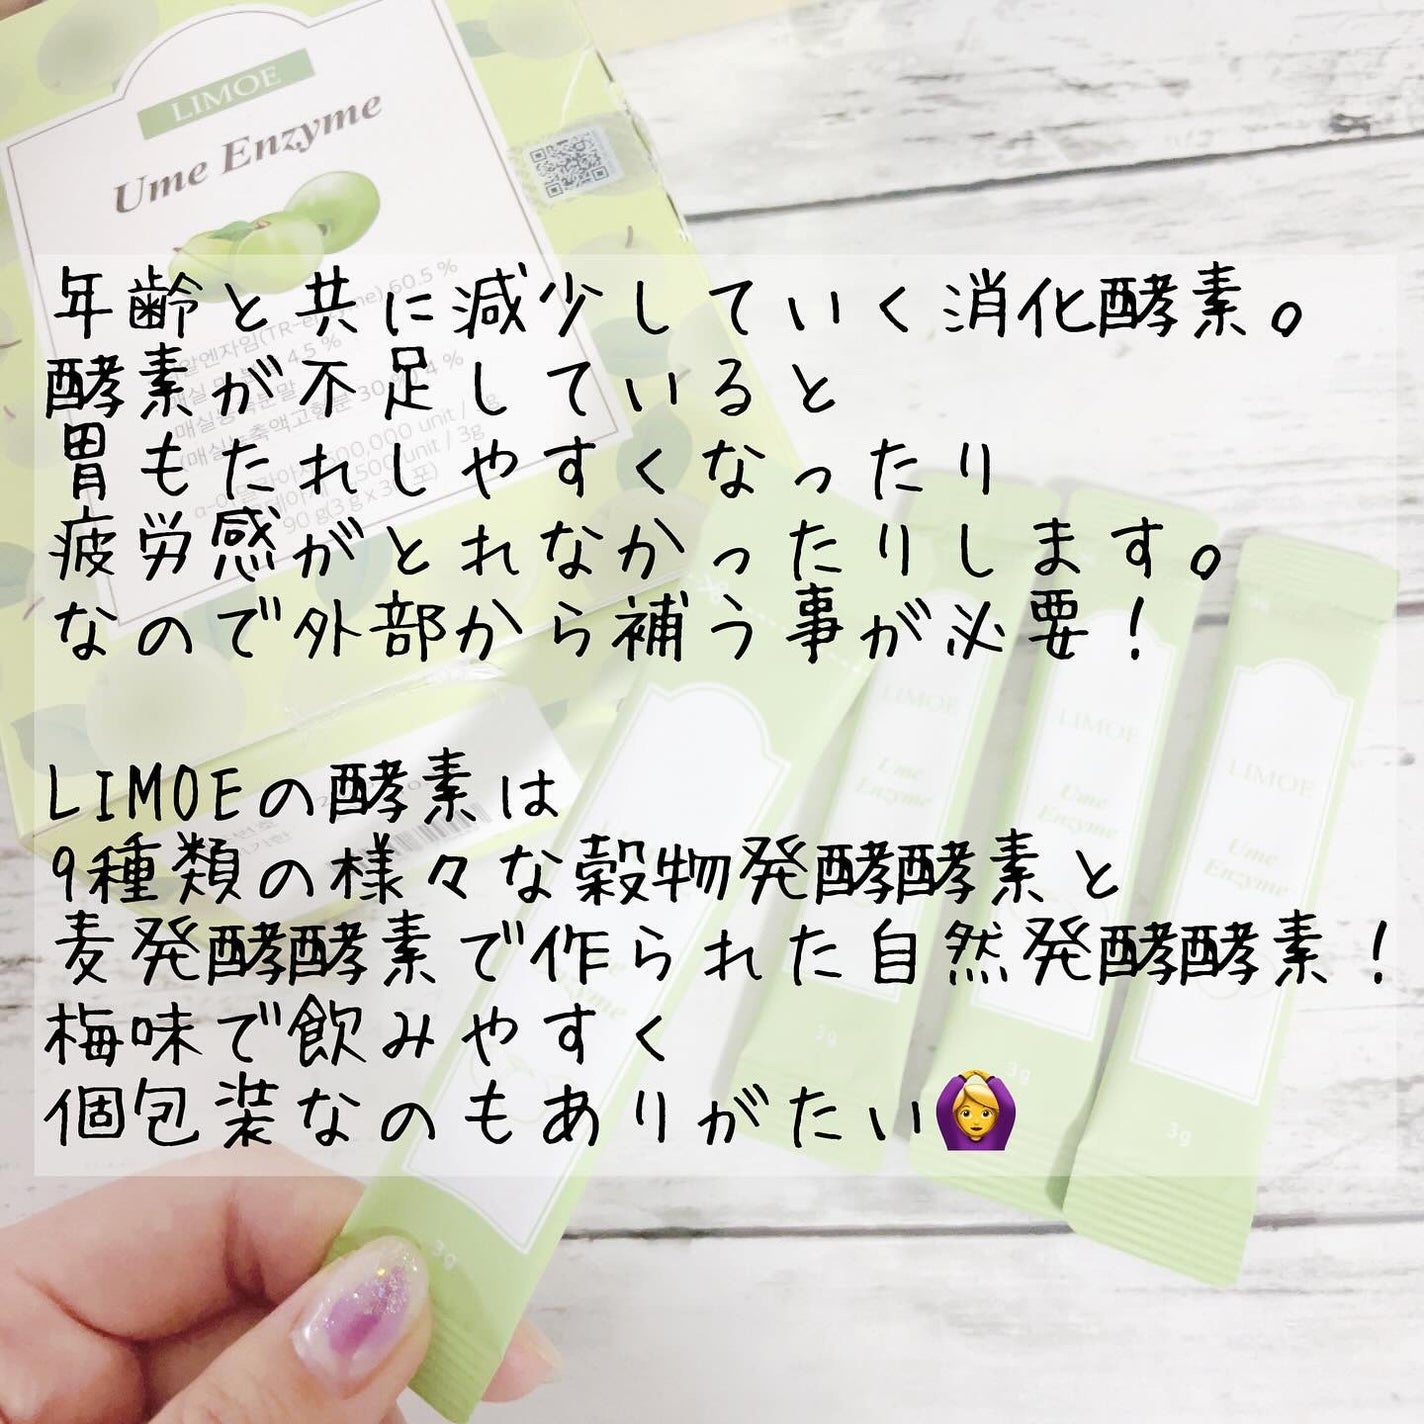 LIMOE
Ume Enzyme
年齢と共に減少していく消化酵素。
酵素が不足していると
胃もたれしやすくなったり
疲労感がとれなかったりします。
なので外部から補う事が必要！
LIMOEの酵素は
9種類の様々な穀物発酵酵素と
麦発酵酵素で作られた自然発酵酵素！
梅味で飲みやすく
個包装なのもありがたい🙆‍♀️
LIMOE
Ume
Enzyme
3g
LIMOE
Ume
Enzyme
3g
LIMOE
Ume
Enzyme
3g
3g